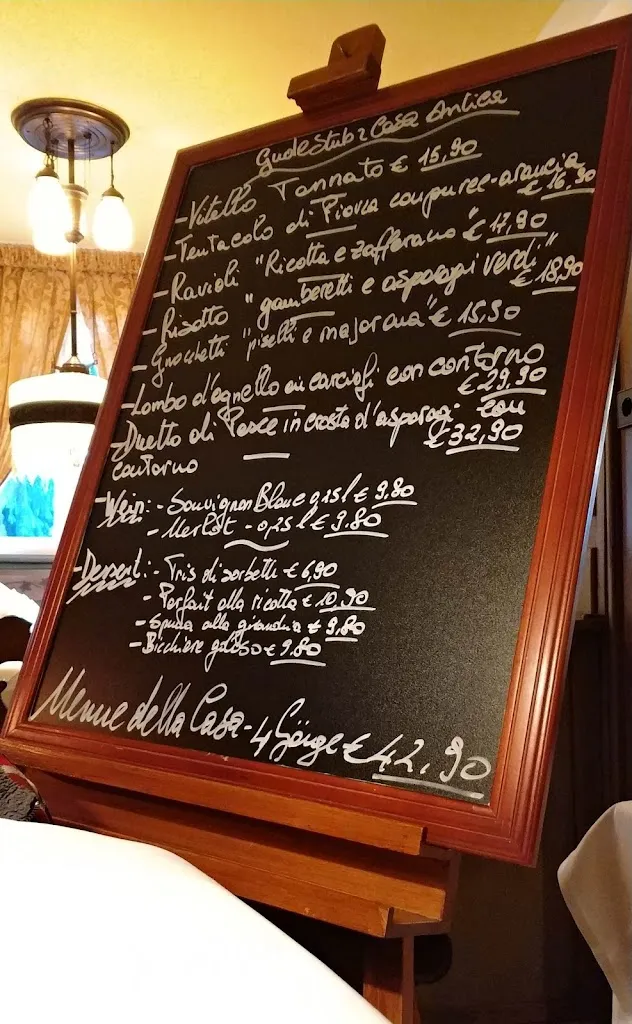 GudeStub 2 Casa Antica
- Vitello Tonnato € 15,90
- Tentacolo di Piovra con puree-arancia
€ 16,90
- Ravioli "Ricotta e zafferano" € 17,90
- Risotto "gamberetti e asparagi verdi"
€ 18,90
- Gnocchetti "piselli e majorana" € 15,90
- Lombo d'agnello con carciofi con contorno
€ 29,90
- Duetto di Pesce in crosta d'asparagi con
contorno € 32,90
- Wein: - Sauvignon Blanc 0,25 l € 9,80
- Merlot - 0,25 l € 9,80
- Dessert: - Tris di sorbetti € 6,90
- Parfait alla ricotta € 10,90
- Spuma alla € 9,80
- Bicchiere goloso € 9,80
Menue della Casa - 4 Gänge € 42,90